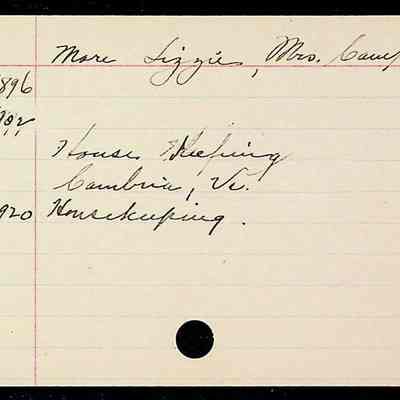 More Lizzie, Mrs. Camp
896
House Keeping
Cambria, Va.
920 Housekeeping.